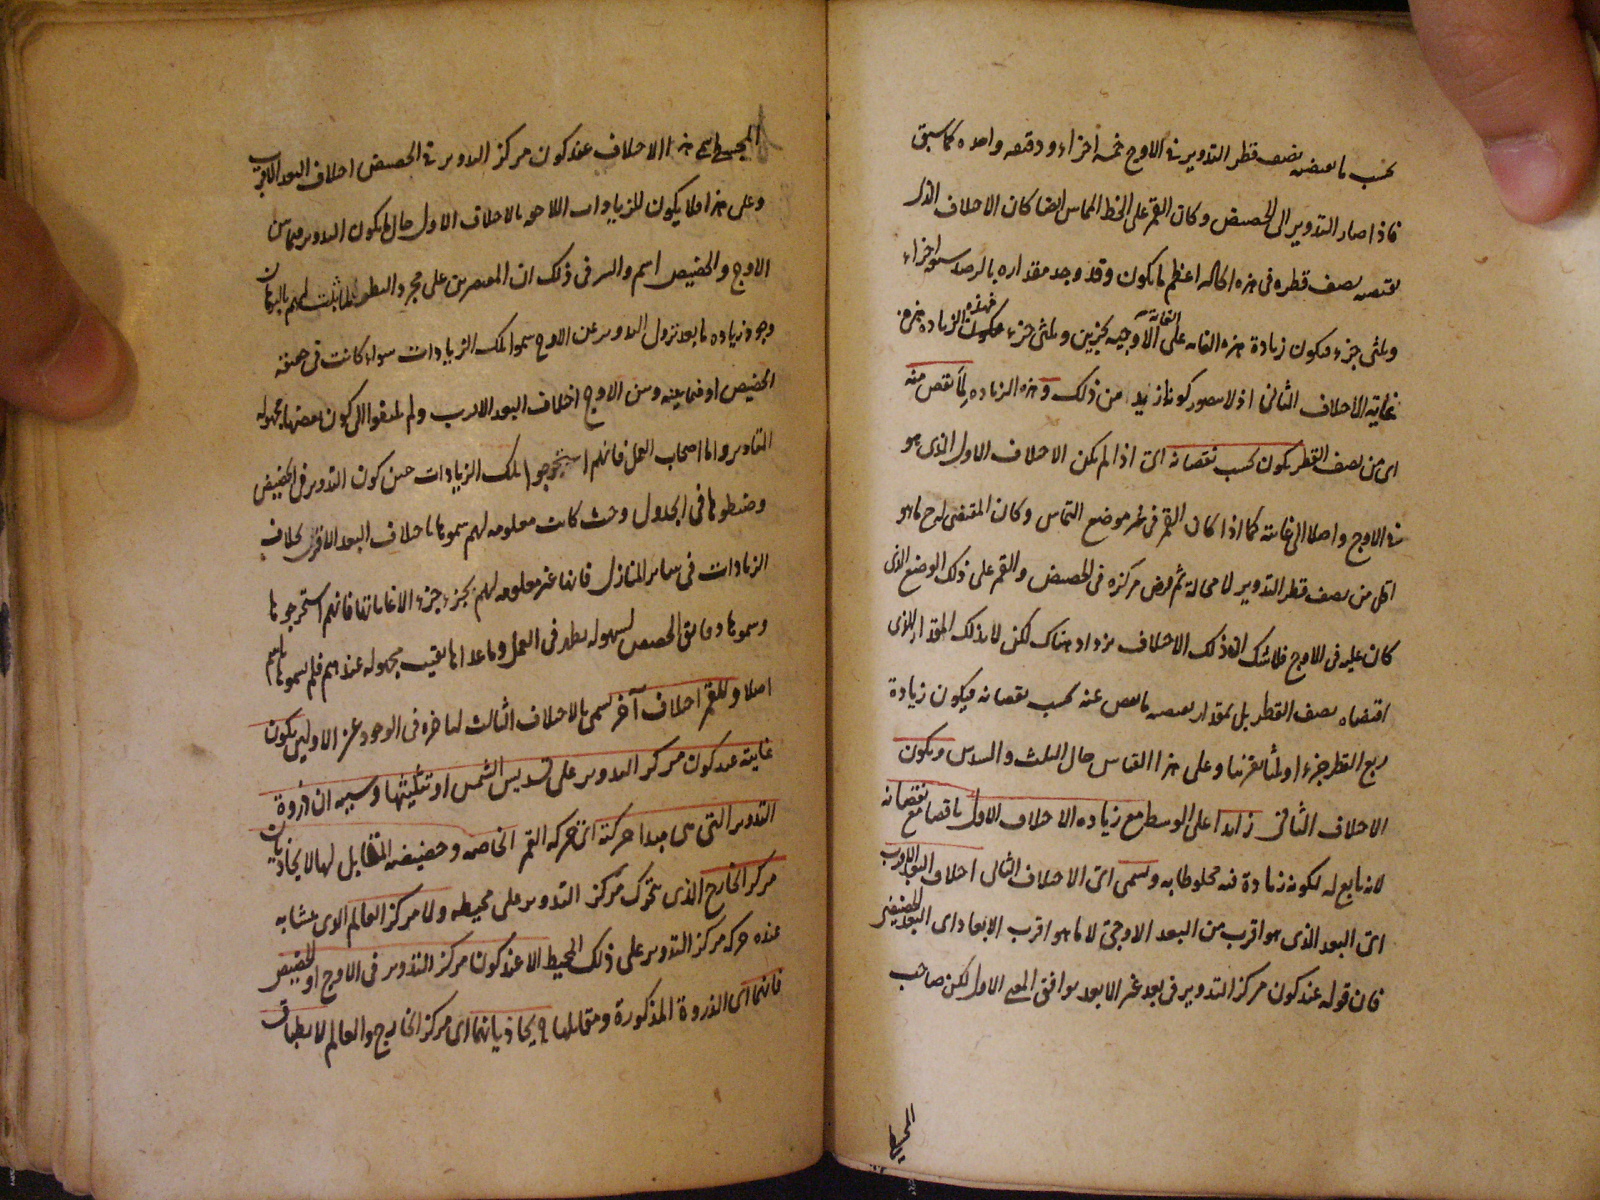 بحسب ما يقتضيه نصف قطر التدوير في الاوج خمسة اجزاء ودقيقة واحدة كما سبق
فاذا صار التدوير الى الحضيض وكان القمر على الخط المماس ايضا كان الاختلاف الذي
يقتضيه نصف قطره في هذه الحالة اعظم ما يكون وقد وجد مقداره بالرصد سبعة اجزاء
وثلثى جزء فيكون زيادة هذه الغاية على الغاية الاوجية بجزئين وثلثى جزء فهذه الزيادة هي
غاية الاختلاف الثانى اذ لا يتصور كونه ازيد من ذلك وهذه الزيادة لما نقص منه
اى من نصف القطر يكون بحسب نقصانه اى اذا لم يكن الاختلاف الاول الذى هو
في الاوج واصلا الى غايته كما اذا كان القمر في غير موضع التماس وكان المقتضى له ح ما هو
اقل من نصف قطر التدوير لا محالة ثم فرض مركزه فى الحضيض والقمر على ذلك الوضع الذى
كان عليه فى الاوج فلا شك ان ذلك الاختلاف يزداد هناك لكن لا بذلك المقدار الذى
اقتضاه نصف القطر بل بمقدار بعضه ما نقص عنه بحسب نقصانه فيكون زيادة
ربع القطر جزء او ثلثا تقريبا وعلى هذا القياس حال الثلث والسدس ويكون
الاختلاف الثانى زايدا على الوسط مع زيادة الاختلاف الاول ناقصا مع نقصانه
لانه تابع له لكونه زيادة فيه مخلوطا به ويسمى اى الاختلاف الثانى اختلاف البعد الاقرب
اى البعد الذى هو اقرب من البعد الاوجى لا ما هو اقرب الابعاد اى البعد الحضيضى
فان قوله عند كون مركز التدوير فى بعد غير الابعد يوافق المعنى الاول لكن صاحب
المجسطى
المجسطى سمى هذا الاختلاف عند كون مركز التدوير في الحضيض اختلاف البعد الاقرب
وعلى هذا فلا يكون للزيادات اللاحقة بالاختلاف الاول حال ما يكون التدوير فيما بين
الاوج والحضيض اسم والسر فى ذلك ان المقتصرين على مجرد النظر لما ثبت لهم بالبرهان
وجود زيادة ما بعد نزول التدوير عن الاوج سموا تلك الزيادات سواء كانت فى
الحضيض او فيما بينه وبين الاوج اختلاف البعد الاقرب ولم يلتفتوا الى كون بعضها مجهولة
المقادير واما اصحاب العمل فانهم استخرجوا تلك الزيادات حين كون التدوير فى الحضيض
وضبطوها فى الجدول وحيث كانت معلومة لهم سموها باختلاف البعد الاقرب بخلاف
الزيادات فى ساير المنازل فانها غير معلومة لهم بجزء جزء الا غاياتها فانهم استخرجوها
وسموها دقايق الحصص لسهولة فى العمل وما عداها بقيت مجهولة عندهم فلم يسموها باسم
اصلا وللقمر اختلاف آخر يسمى بالاختلاف الثالث لتأخره فى الوجود عن الاولين يكون
غايته عند كون مركز التدوير على تسديس الشمس او تثليثها وسببه ان ذروة
التدوير التى هى مبدا حركته اى حركة القمر الخاصة وحضيضه المقابل لها لا يحاذيان
مركز الخارج الذى يتحرك مركز التدوير على محيطه ولا مركز العالم الذى يتشابه
عنده حركة مركز التدوير على ذلك المحيط الا عند كون مركز التدوير فى الاوج او الحضيض
فانهما اى الذروة المذكورة ومقابلها ح يحاذيانهما اى مركز الخارج والعالم لانطباق